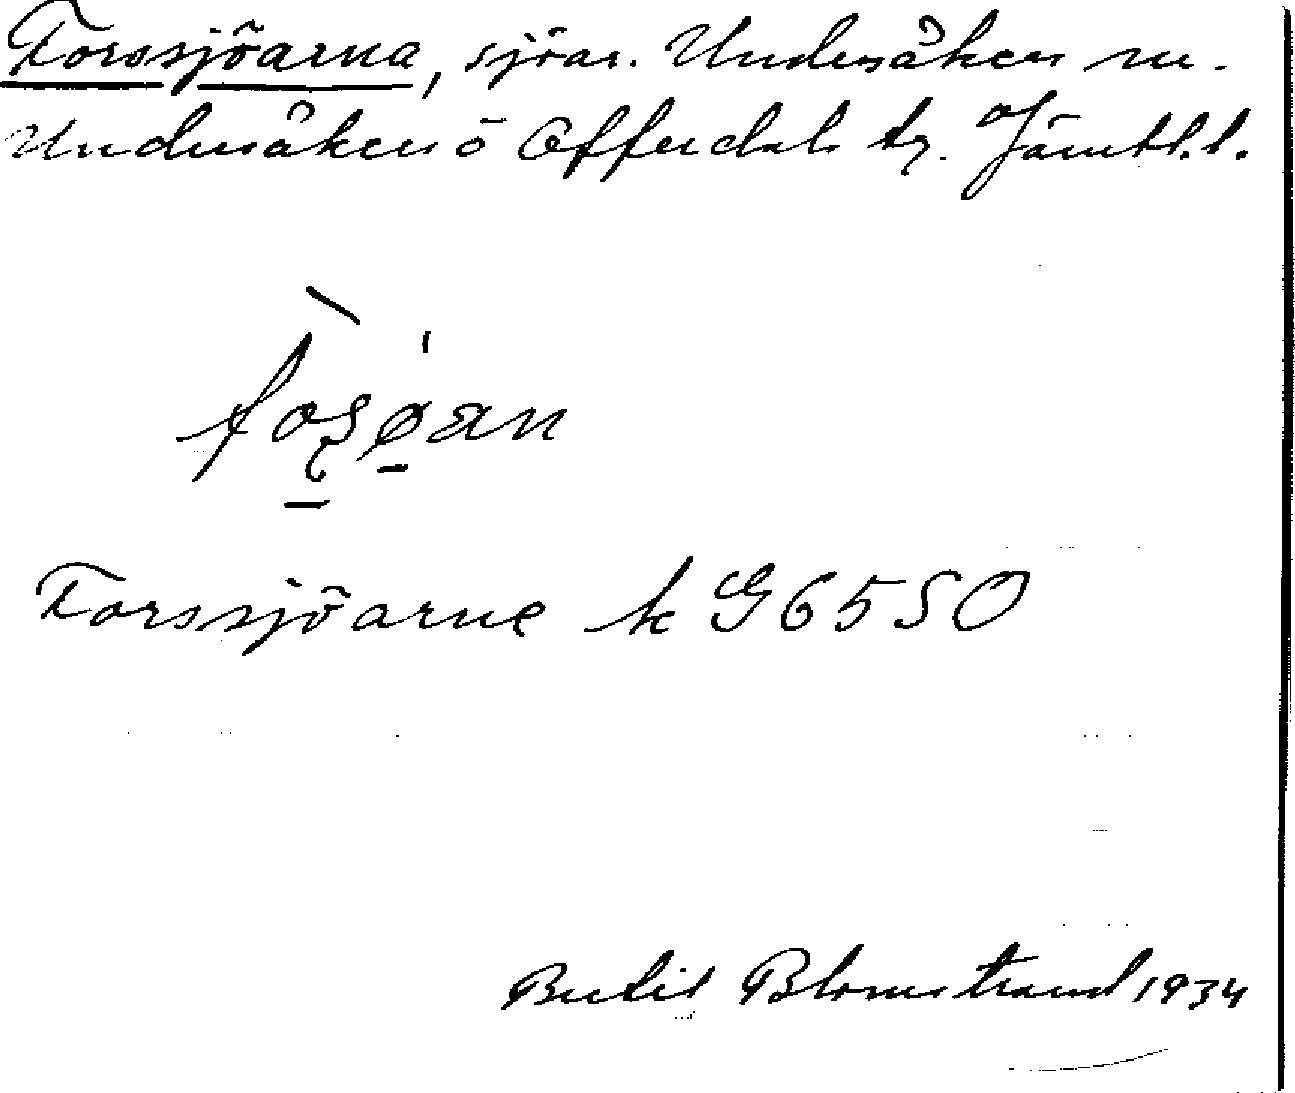 Forssjöarna, sjöar. Undersåkers sn.
Undersåkers o Offerdals tg. Jämtl. l.
Forssjöarne k G6550
Bertil Blomstrand 1934